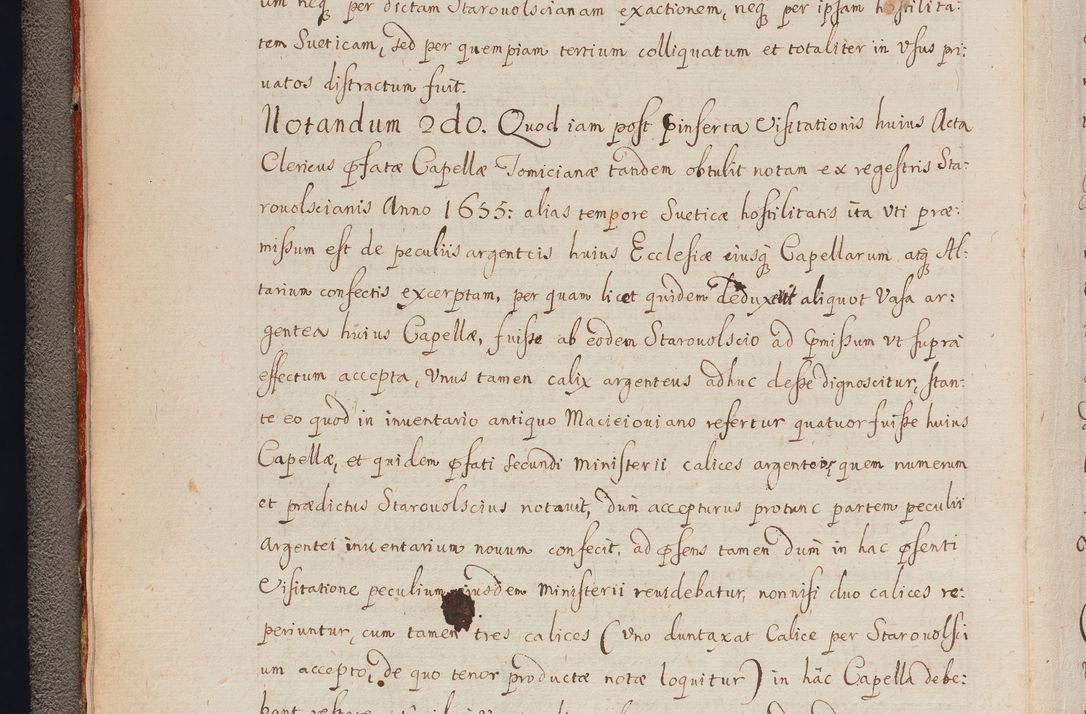 um neq₃ per dictam Starovolscianam exactionem, neq₃ per ipsam hostilita:
tem Sueticam, sed per quempiam tertium colliquatum et totaliter in Usus pri:
vatos distractum fuit.
Notandum 2do. Quod iam post pinserta Visitationis huius Acta
Clericus pfatæ Capellæ Tomicianæ tandem obtulit notam ex regestris Sta:
rovolscianis Anno 1655: alias tempore Sueticæ hostilitatis ita uti præ:
missum est de peculiis argenteis huius Ecclesiæ eiusq₃ Capellarum atq₃ Al:
tarium confectis excerptam, per quam licet quidem deduxerit aliquot Vasa ar:
gentea huius Capellæ, fuisse ab eodem Starovolscio ad pmissum ut supra
effectum accepta, Unus tamen calix argenteus adhuc deße dignoscitur, stan:
te eo quod in inventario antiquo Macieioviano refertur quatuor fuiße huius
Capellæ, et quidem pfati secundi Ministerii calices argenteos, quem numerum
et prædictus Starovolscius notavit, dum accepturus protunc partem peculii
Argentei inventarium novum confecit, ad psens tamen dum in hac psenti
Visitatione peculium eiusdem Ministerii revidebatur, non nisi duo calices re:
periuntur, cum tamen tres calices (Uno duntaxat Calice per Starovolsci
um accepto, de quo tenor productæ notæ loquitur) in hac Capella debe:
bant restare